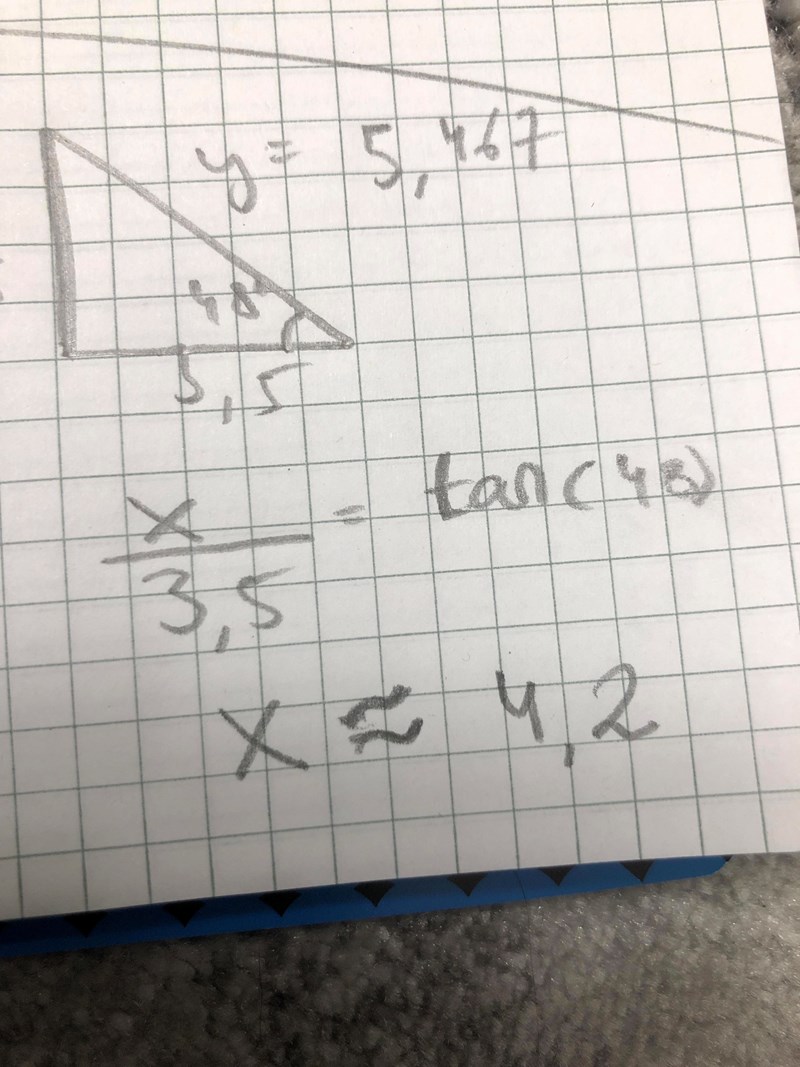 y = 5,467
48°
3,5
x/3,5 = tan(48)
x ≈ 4,2